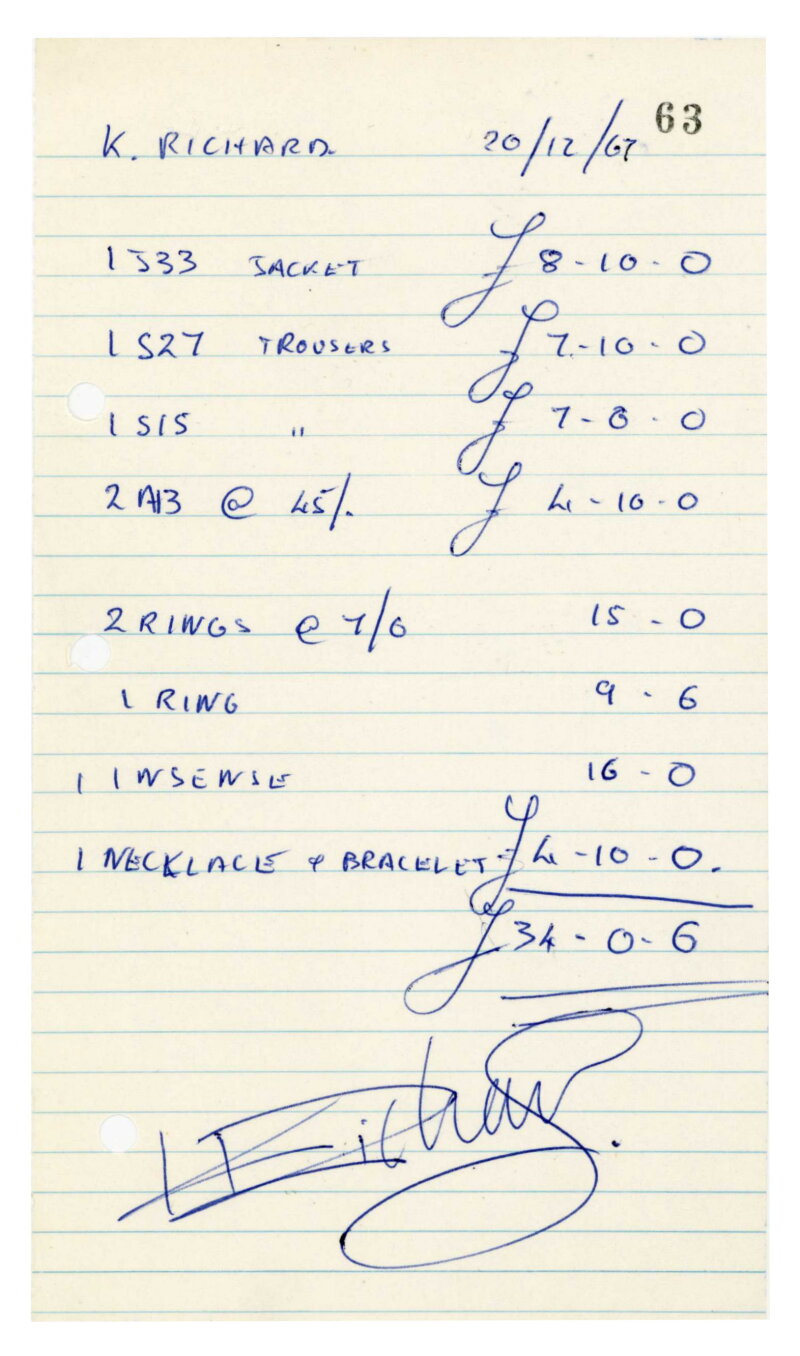 63
K. RICHARD 20/12/67
1 J33 JACKET £8-10-0
1 S27 TROUSERS £7-10-0
1 S15 " £7-0-0
2 A13 @ 45/. £4-10-0
2 RINGS @ 7/6 15-0
1 RING 9-6
1 INSENSE 16-0
1 NECKLACE & BRACELET £4-10-0.
£34-0-6
K Richard.